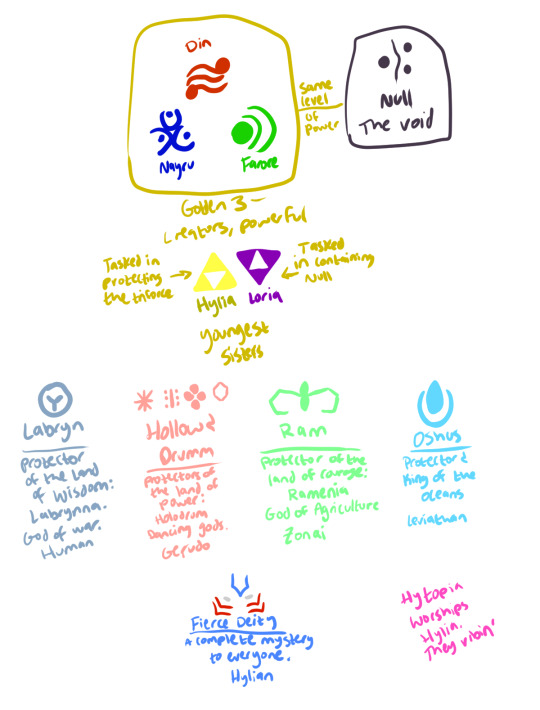 Din
Nayru
Farore
same
level
of
power
Null
The void
Golden 3 -
Creators, powerful
Tasked in
protecting
the triforce
Tasked
in containing
Null
Hylia
Loria
youngest
sisters
Labryn
protector
of the land
of wisdom:
Labrynna.
God of war.
Human
Hollow &
Drumm
protectors of
the land of
power:
Holodrum
Dancing gods.
Gerudo
Ram
Protector of the
land of courage:
Ramenia
God of Agriculture
Zonai
Oshus
Protector &
King of the
Oceans
Leviathan
Fierce Deity
A complete mystery
to everyone.
Hylian
Hytopia
worships
Hylia.
They vibin'